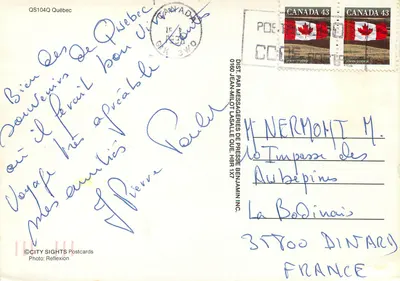 QS104Q Québec
Bien des
souvenirs de Québec
où il fait bon vivre
Voyage très agréable
mes amitiés
J Pierre Paulet
©CITY SIGHTS Postcards
Photo: Reflexion
DIST. PAR MESSAGERIES DE PRESSE BENJAMIN INC.
0160 JEAN-MILOT LASALLE QUE. H8R 1X7
CANADA
CANADA 43
CANADA 43
POSTAL
CODE
M. NERMONT M.
10 Impasse des
Aubépines
La Bodinais
35800 DINARD
FRANCE